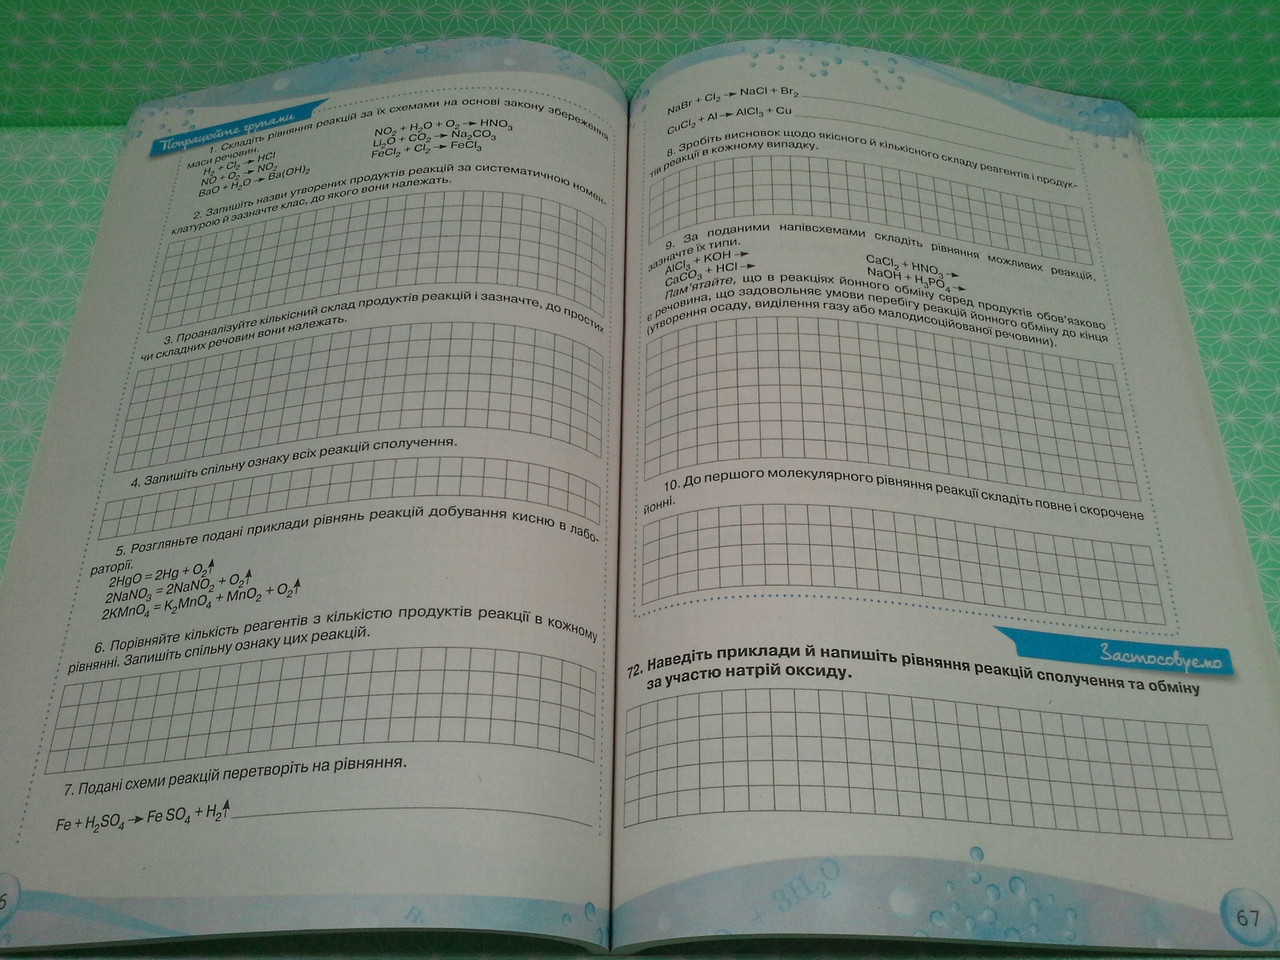 Попрацюйте групами
1. Складіть рівняння реакцій за їх схемами на основі закону збереження
маси речовин.
H₂ + Cl₂ → HCl
NO + O₂ → NO₂
BaO + H₂O → Ba(OH)₂
NO₂ + H₂O + O₂ → HNO₃
Li₂O + CO₂ → Na₂CO₃
FeCl₂ + Cl₂ → FeCl₃
2. Запишіть назви утворених продуктів реакцій за систематичною номен-
клатурою й зазначте клас, до якого вони належать.
3. Проаналізуйте кількісний склад продуктів реакцій і зазначте, до простих
чи складних речовин вони належать.
4. Запишіть спільну ознаку всіх реакцій сполучення.
5. Розгляньте подані приклади рівнянь реакцій добування кисню в лабо-
раторії.
2HgO = 2Hg + O₂↑
2NaNO₃ = 2NaNO₂ + O₂↑
2KMnO₄ = K₂MnO₄ + MnO₂ + O₂↑
6. Порівняйте кількість реагентів з кількістю продуктів реакції в кожному
рівнянні. Запишіть спільну ознаку цих реакцій.
7. Подані схеми реакцій перетворіть на рівняння.
Fe + H₂SO₄ → Fe SO₄ + H₂↑
6
NaBr + Cl₂ → NaCl + Br₂
CuCl₂ + Al → AlCl₃ + Cu
8. Зробіть висновок щодо якісного й кількісного складу реагентів і продук-
тів реакції в кожному випадку.
9. За поданими напівсхемами складіть рівняння можливих реакцій,
зазначте їх типи.
AlCl₃ + KOH →
CaCO₃ + HCl →
CaCl₂ + HNO₃ →
NaOH + H₃PO₄ →
Пам'ятайте, що в реакціях йонного обміну серед продуктів обов'язково
є речовина, що задовольняє умови перебігу реакцій йонного обміну до кінця
(утворення осаду, виділення газу або малодисоційованої речовини).
10. До першого молекулярного рівняння реакції складіть повне і скорочене
йонні.
Застосовуємо
72. Наведіть приклади й напишіть рівняння реакцій сполучення та обміну
за участю натрій оксиду.
+ 3H₂O
67